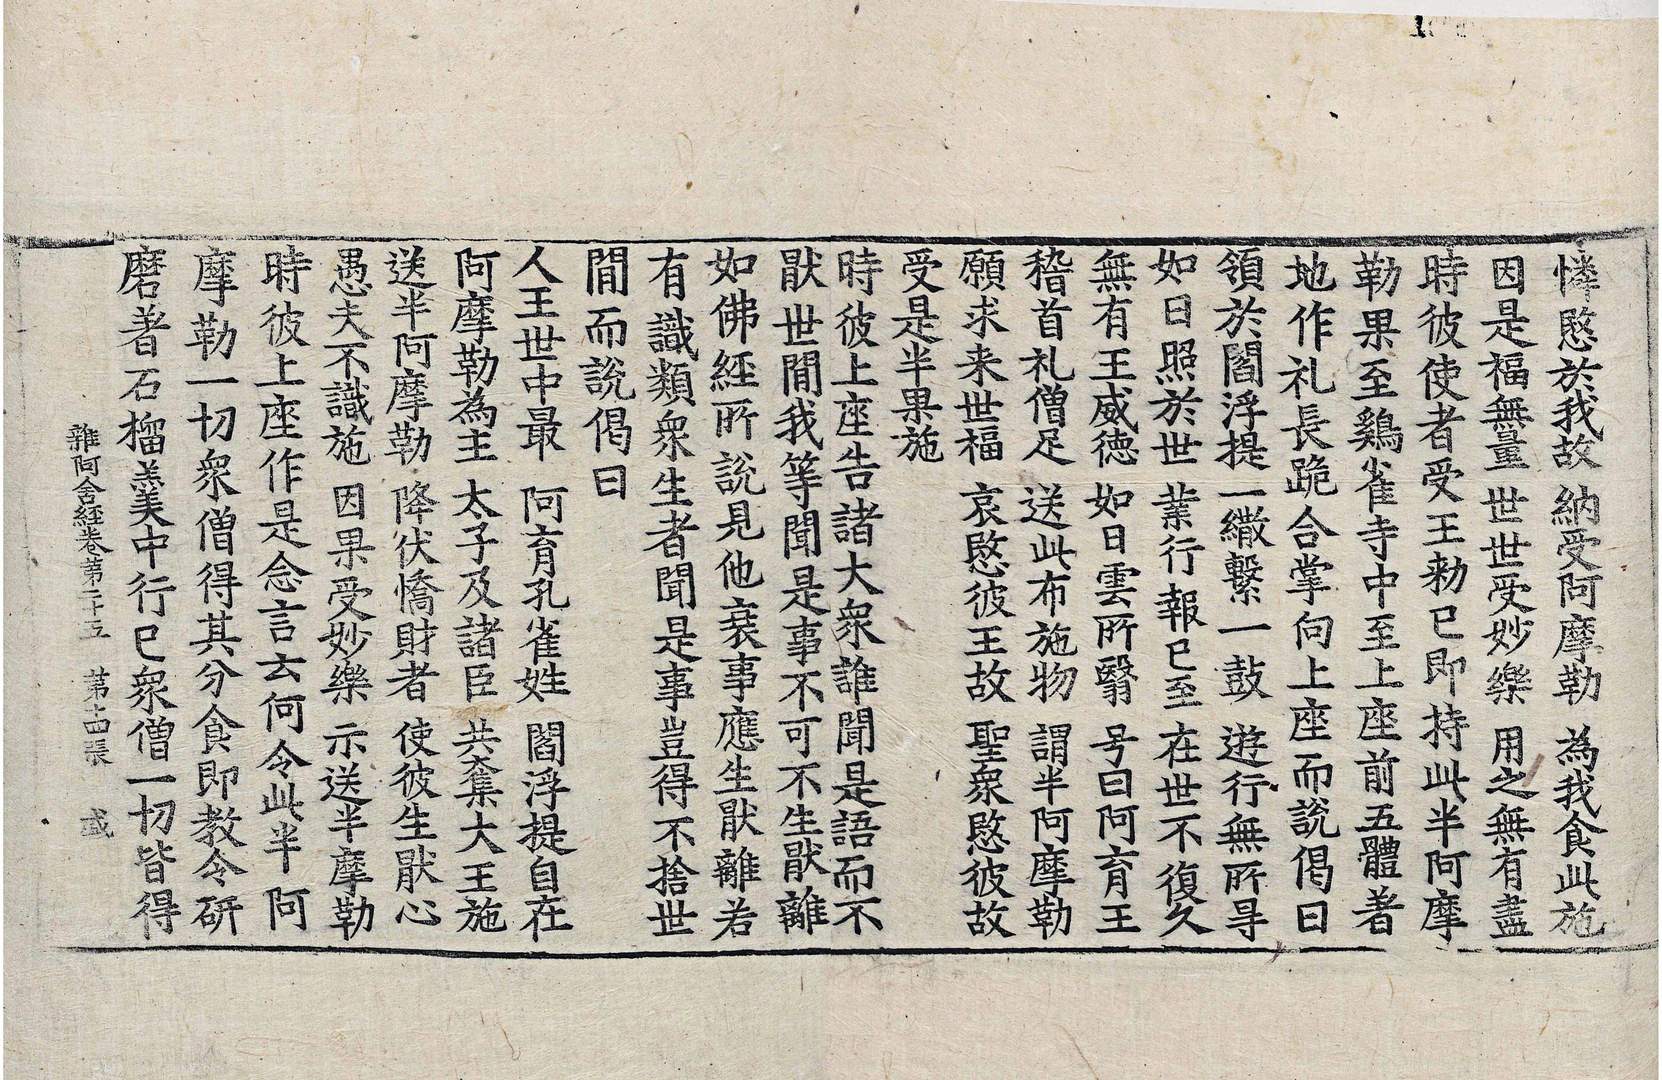 憐愍於我故 納受阿摩勒 為我食此施
因是福無量 世世受妙樂 用之無有盡
時彼使者受王勑已即持此半阿摩
勒果至鷄雀寺中至上座前五體著
地作礼長跪合掌向上座而說偈曰
領於閻浮提 一繖繫一鼓 遊行無所㝵
如日照於世 業行報已至 在世不復久
無有王威德 如日雲所翳 号曰阿育王
稽首礼僧足 送此布施物 謂半阿摩勒
願求来世福 哀愍彼王故 聖衆愍彼故
受是半果施
時彼上座告諸大衆誰聞是語而不
猒世間我等聞是事不可不生猒離
如佛經所說見他衰事應生猒離若
有識類衆生者聞是事豈得不捨世
間而說偈曰
人王世中最 阿育孔雀姓 閻浮提自在
阿摩勒為主 太子及諸臣 共奪大王施
送半阿摩勒 降伏憍財者 使彼生猒心
愚夫不識施 因果受妙樂 示送半摩勒
時彼上座作是念言云何令此半阿
摩勒一切衆僧得其分食即教令研
磨著石榴羹中行已衆僧一切皆得
雜阿含経卷第二十五 第十四張 盛